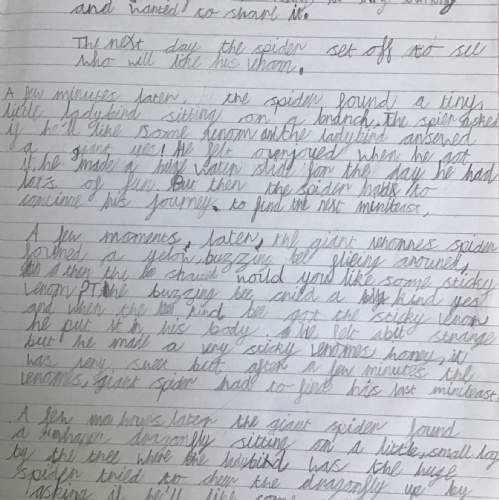 and wanted to share it.
The next day the spider set off to see
who will like his venom.
A few minutes later, the spider found a tiny
little ladybird sitting on a branch. The spider asked
if he'll like some venom and the ladybird answered
a giant yes! He felt overjoyed when he got
it. he made a huge water slide for the day he had
lots of fun. But then the spider had to
continue his journey to find the next minibeast.
A few moments, later, the giant venomes spider
found a yelow buzzing bee flieing around,
then the shouted would you like some sticky
venom? The buzzing bee said a kind yes
and when the kind bee got the sticky venom
he put it in his body. he felt abit strange
but he made a very sticky venomes honey, it
was very sweet but after a few minutes the
venomes, giant spider had to find his last minibeast
A few hours later the giant spider found
a dragonfly sitting on a little, small log
by the tree where the ladybird was the huge
spider tried to the dragonfly up by
asking if he'll like some